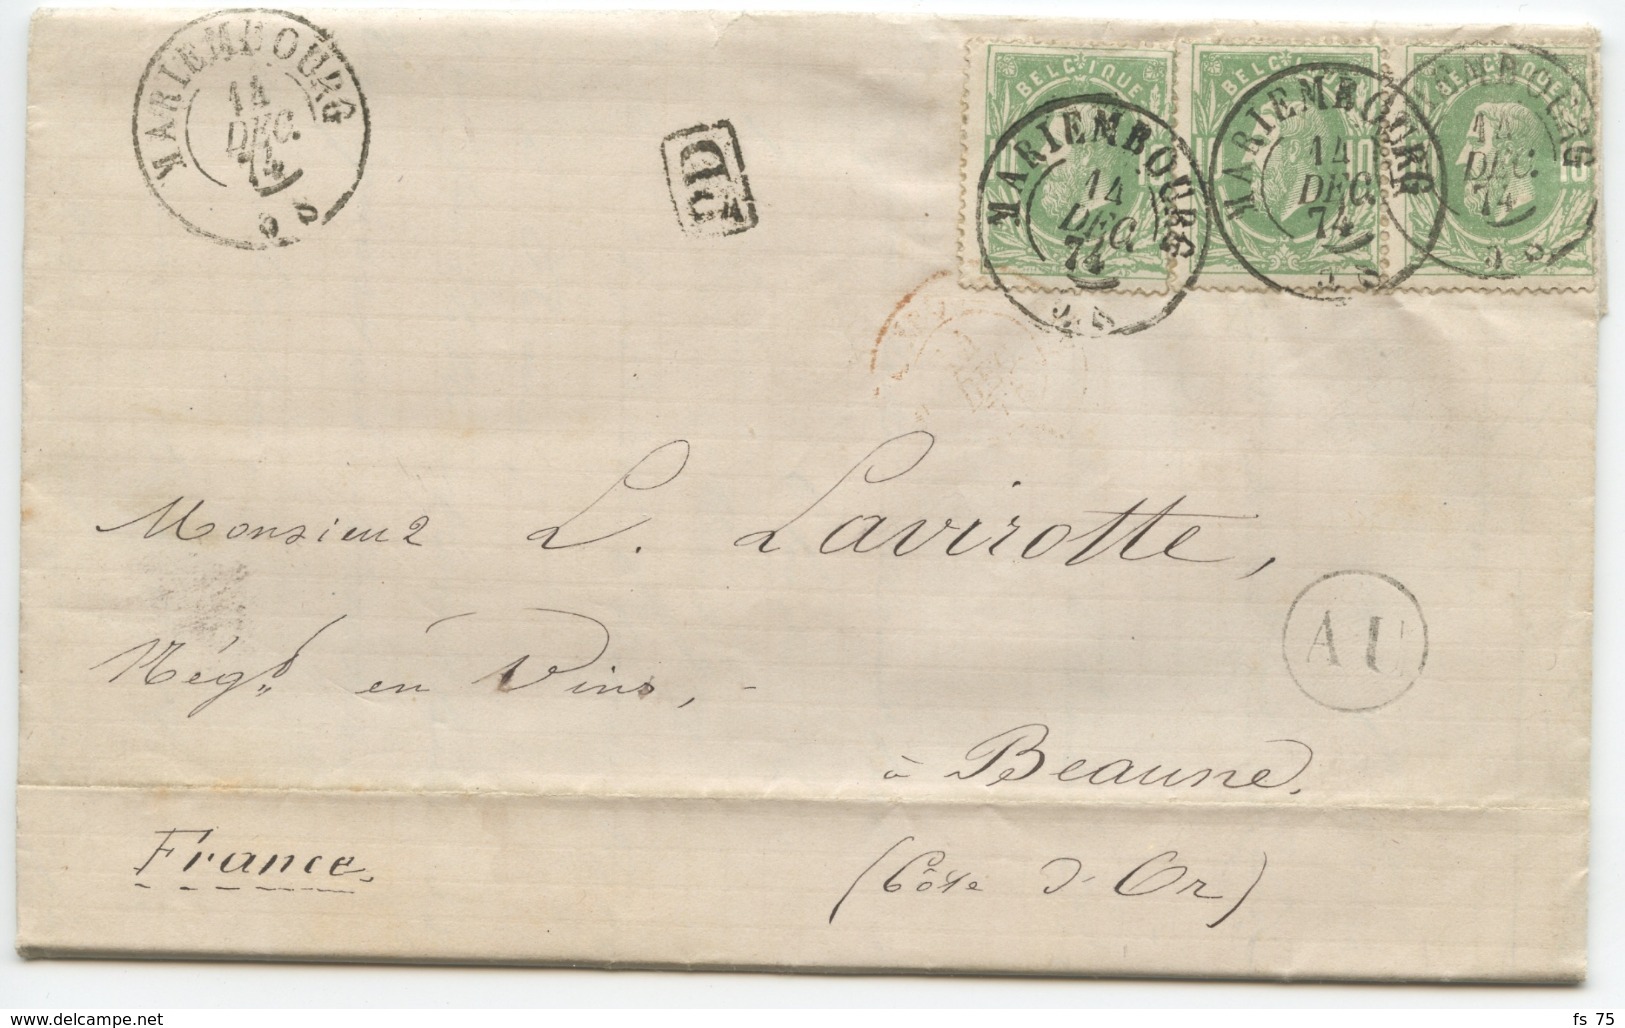 MARIEMBOURG
14
DEC.
74
PD
BELGIQUE
BELGIQUE
BELGIQUE
10
10
10
MARIEMBOURG
14
DEC.
74
MARIEMBOURG
14
DEC.
74
14
DEC.
74
Monsieur L. Lavirotte,
Négt. en Vins,
AU
à Beaune,
France.
(Côte d'Or)
www.delcampe.net
fs 75